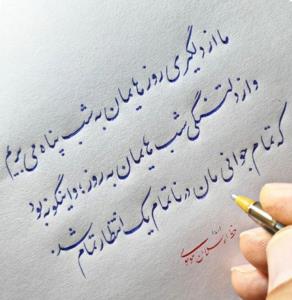 ما از دلگیری روزهایمان به شب پناه می بریم
و از دلتنگی شب هایمان به روز، و اینگونه بود
که تمام جوانی مان در ناتمام یک انتظار تمام شد.